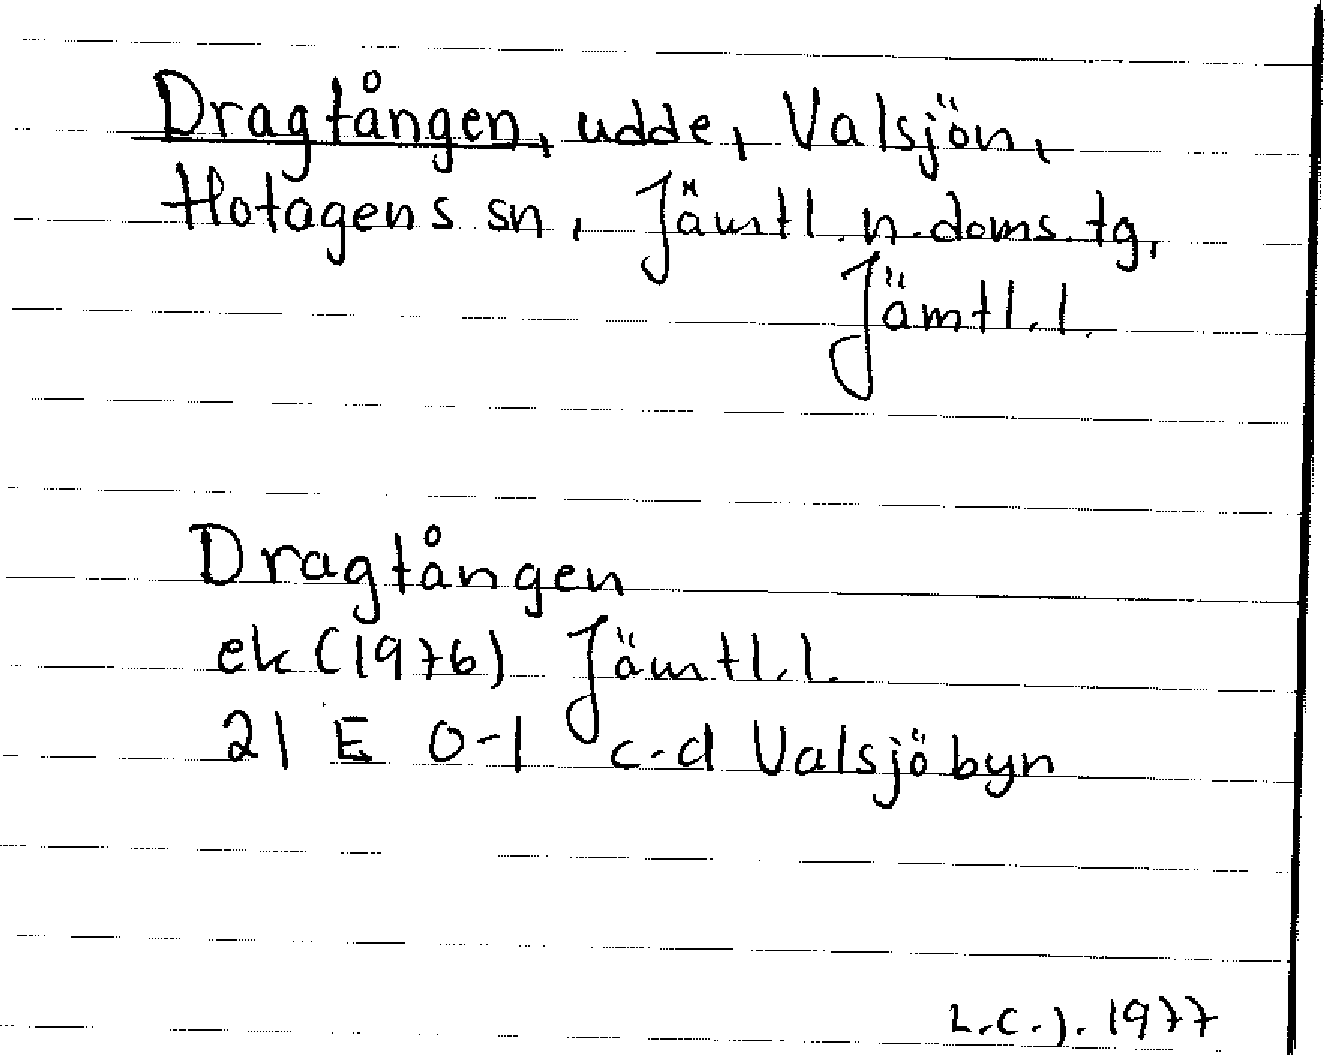 Dragtången, udde, Valsjön,
Hotagens sn, Jämtl. n. doms. tg,
Jämtl. l.
Dragtången
ek (1976) Jämtl. l.
21 E 0-1 c-d Valsjöbyn
L.C.J. 1977